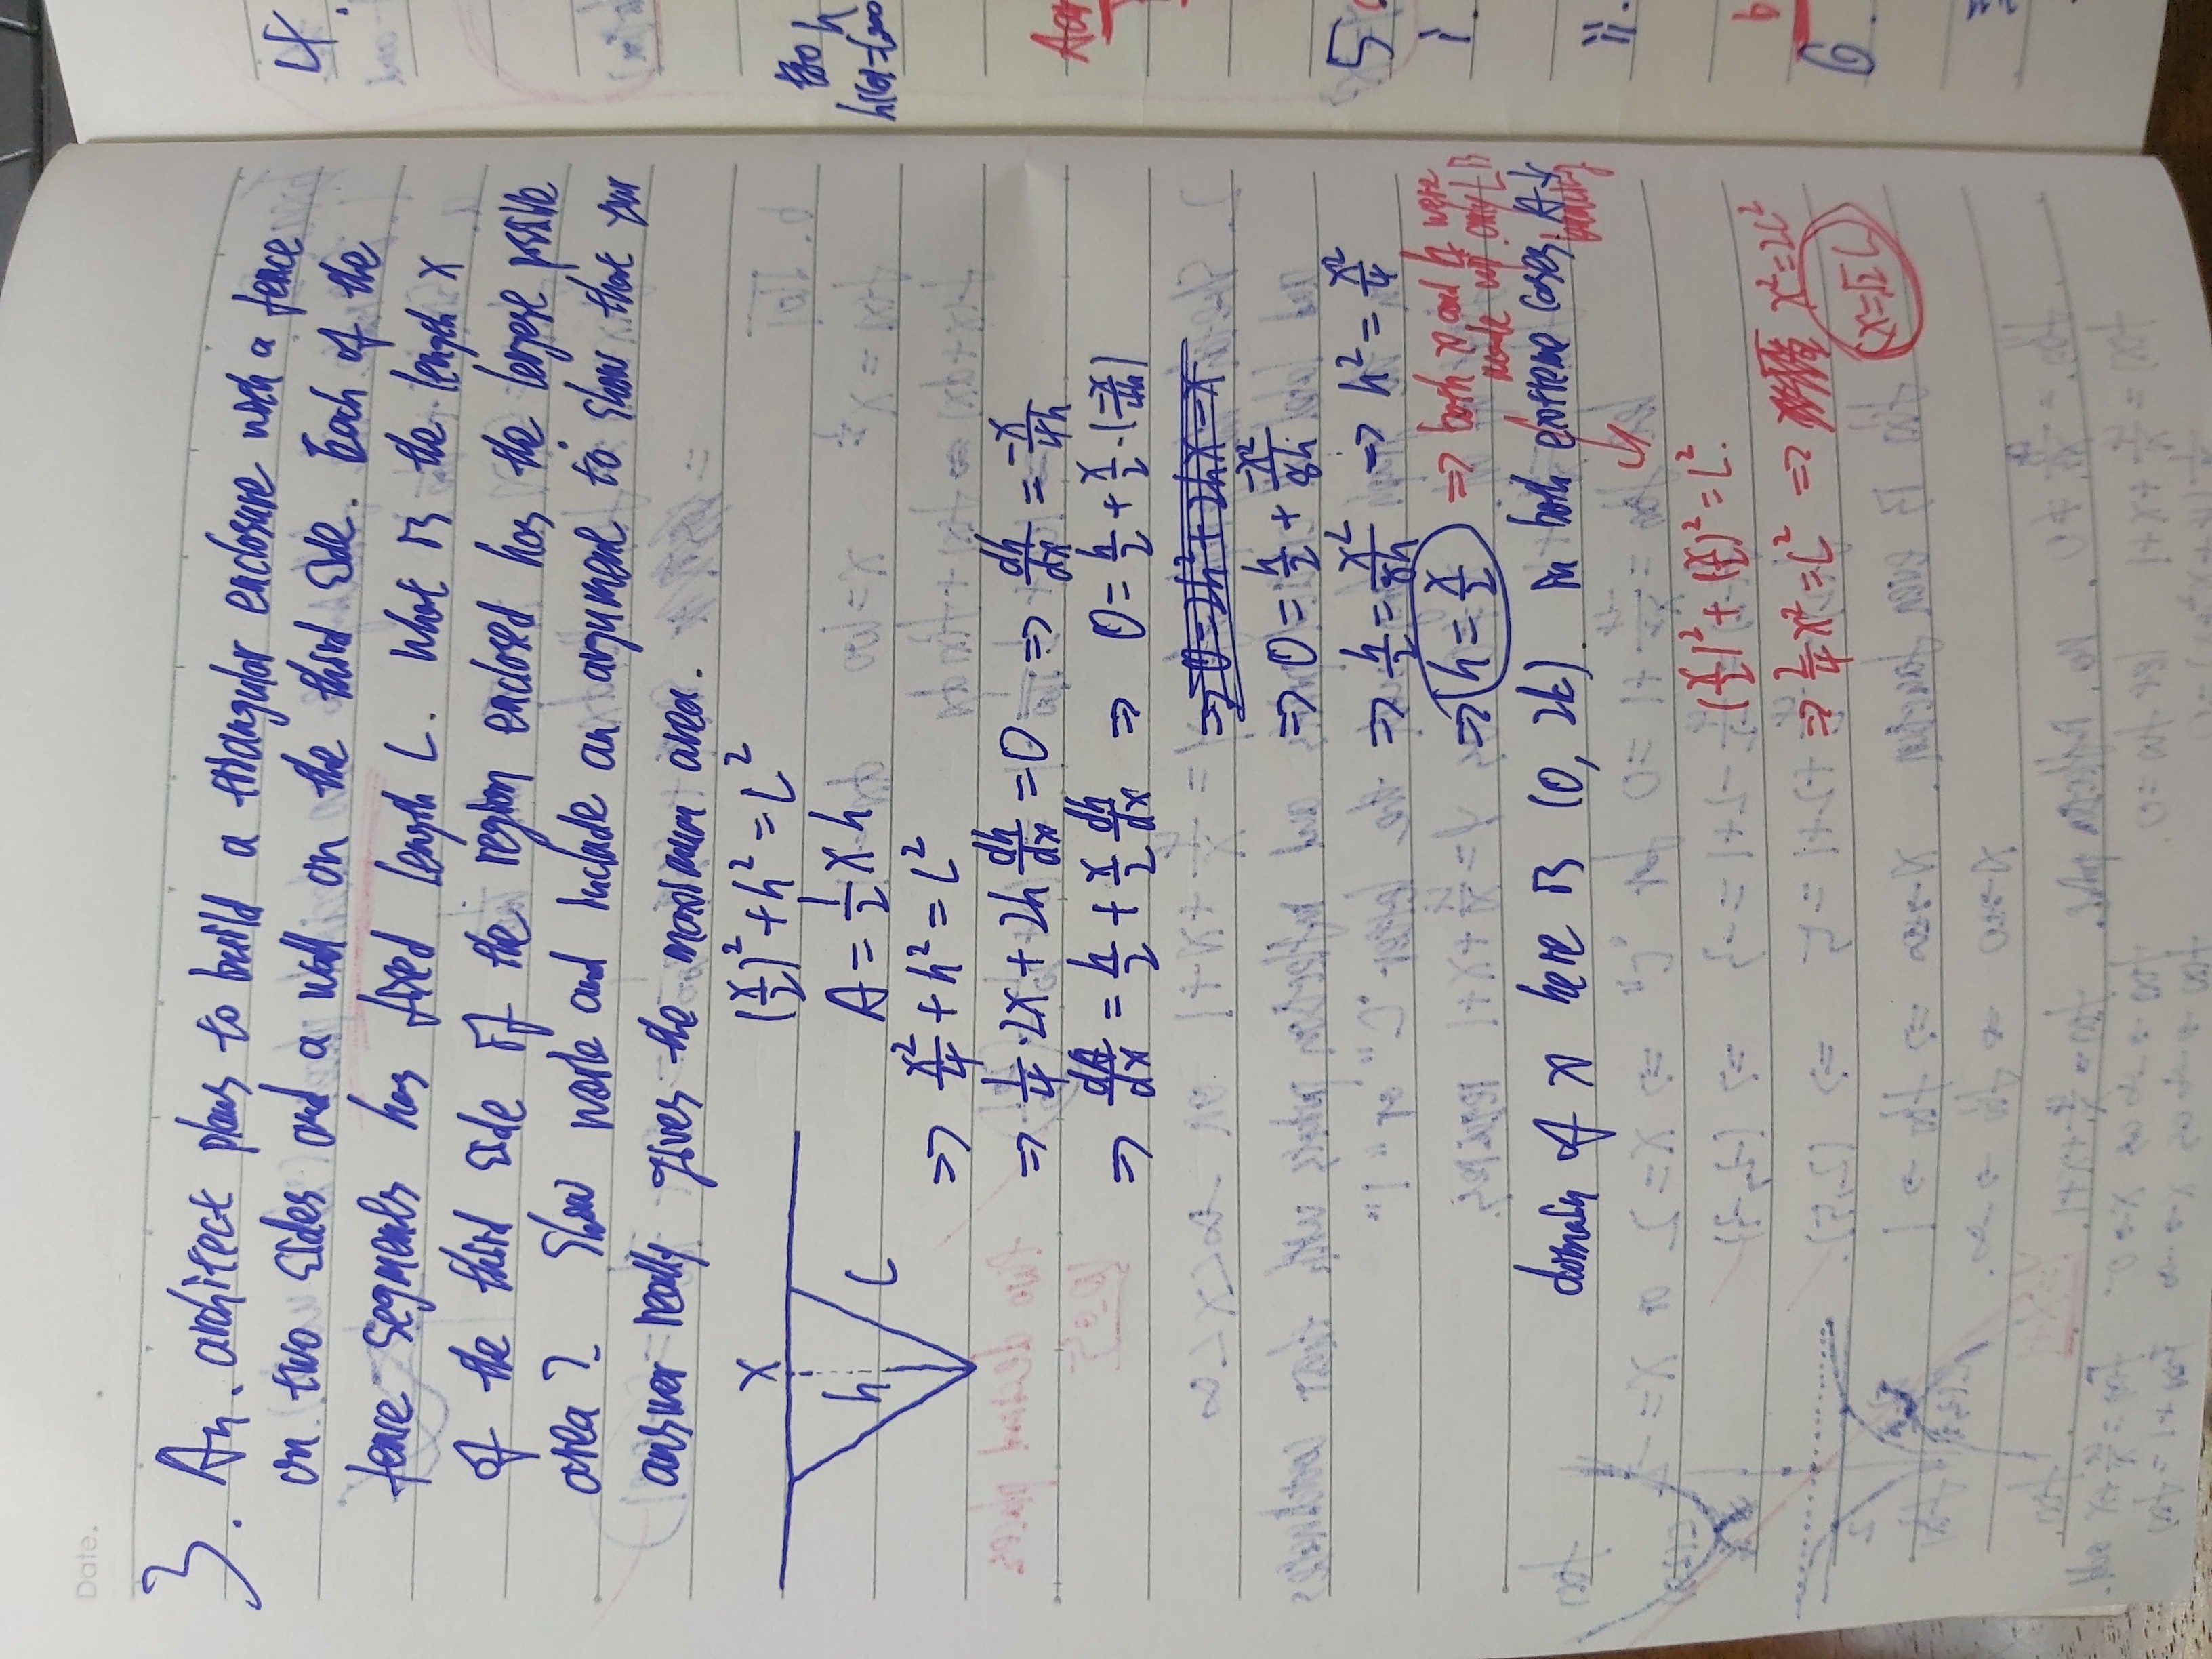 Date.
3. An. architect plans to build a triangular enclosure with a fence
on two sides and a wall on the third side. Each of the
fence segments has fixed length L. What is the length x
of the third side if the region enclosed has the largest possible
area? Show work and include an argument to show that your
answer really gives the maximum area.
x
h
L
(x/2)² + h² = L²
A = 1/2 x h
⇒ x²/4 + h² = L²
⇒ 1/4 · 2x + 2h dh/dx = 0 ⇒ dh/dx = -x/4h
⇒ dA/dx = h/2 + x/2 dh/dx ⇒ 0 = h/2 + x/2 · (-x/4h)
⇒ 0 = 2h² + 2hx - x
⇒ 0 = h/2 + -x²/8h
⇒ h/2 = x²/8h ⇒ h² = x²/4
⇒ h = x/2 ⇒ both x and h were
made up. only L is
domain of x here is (0, 2L). in both extreme cases. A↓
(x/2)² + (x/2)² = L².
⇒ 2/4 x² = L² ⇒ x² = 2L²
x = √2 L
4.
h
5
i.
ii.
6.